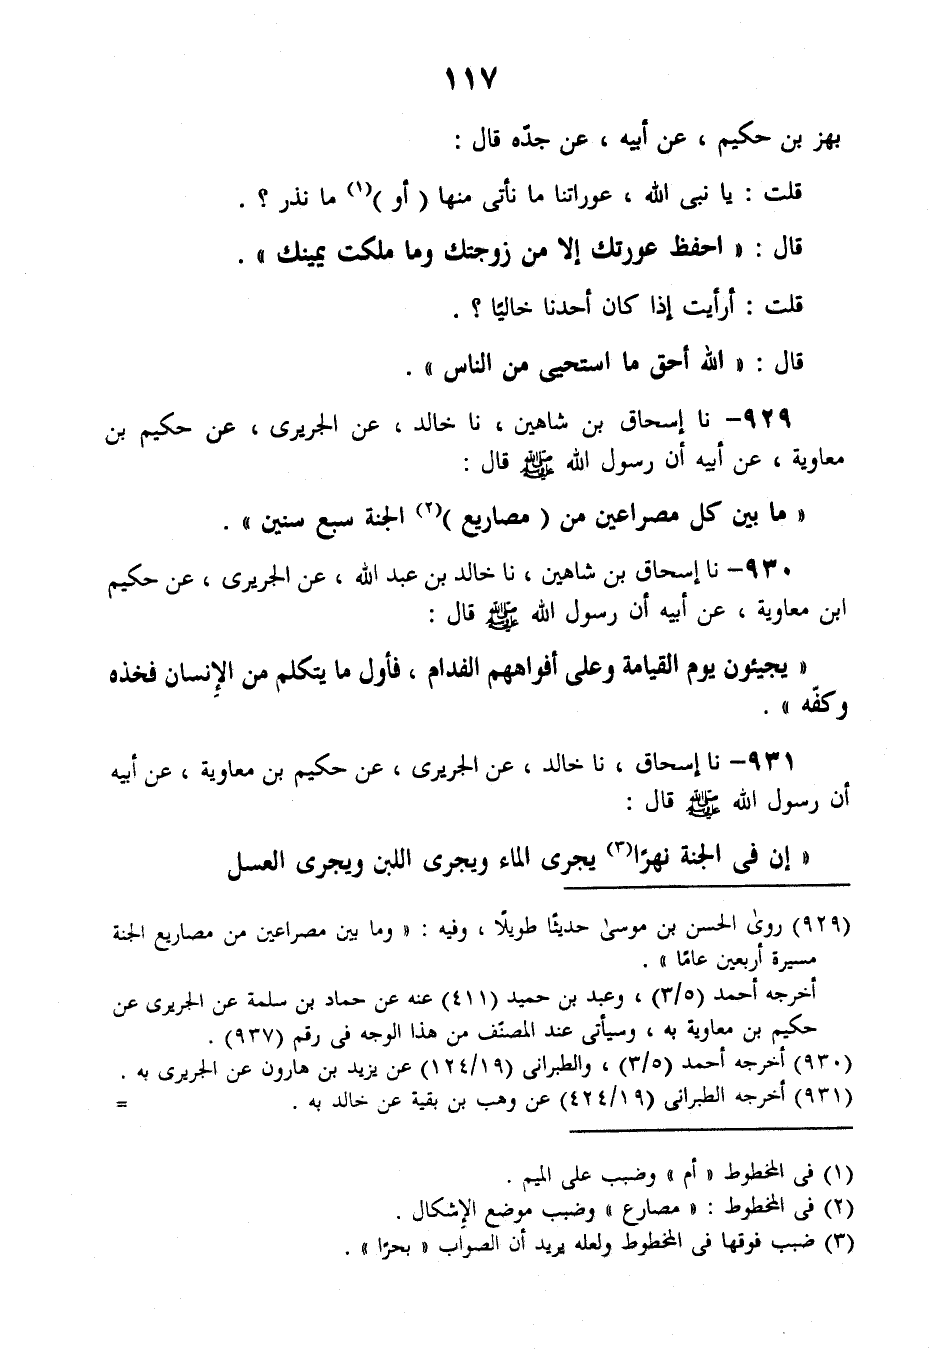 ١١٧
بهز بن حكيم ، عن أبيه ، عن جدّه قال :
قلت : يا نبى الله ، عوراتنا ما نأتى منها ( أو )(١) ما نذر ؟ .
قال : « احفظ عورتك إلا من زوجتك وما ملكت يمينك » .
قلت : أرأيت إذا كان أحدنا خاليًا ؟ .
قال : « الله أحق ما استحيى من الناس » .
٩٢٩- نا إسحاق بن شاهين ، نا خالد ، عن الجريرى ، عن حكيم بن
معاوية ، عن أبيه أن رسول الله ﷺ قال :
« ما بين كل مصراعين من ( مصاريع )(٢) الجنة سبع سنين » .
٩٣٠- نا إسحاق بن شاهين ، نا خالد بن عبد الله ، عن الجريرى ، عن حكيم
ابن معاوية ، عن أبيه أن رسول الله ﷺ قال :
« يجيئون يوم القيامة وعلى أفواههم الفدام ، فأول ما يتكلم من الإنسان فخذه
وكفّه » .
٩٣١- نا إسحاق ، نا خالد ، عن الجريرى ، عن حكيم بن معاوية ، عن أبيه
أن رسول الله ﷺ قال :
« إن فى الجنة نهرًا(٣) يجرى الماء ويجرى اللبن ويجرى العسل
(٩٢٩) روىٰ الحسن بن موسىٰ حديثًا طويلًا ، وفيه : « وما بين مصراعين من مصاريع الجنة
مسيرة أربعين عامًا » .
أخرجه أحمد (٣/٥) ، وعبد بن حميد (٤١١) عنه عن حماد بن سلمة عن الجريرى عن
حكيم بن معاوية به ، وسيأتى عند المصنّف من هذا الوجه فى رقم (٩٣٧) .
(٩٣٠) أخرجه أحمد (٣/٥) ، والطبرانى (١٢٤/١٩) عن يزيد بن هارون عن الجريرى به .
(٩٣١) أخرجه الطبرانى (٤٢٤/١٩) عن وهب بن بقية عن خالد به . =
(١) فى المخطوط « أم » وضبب على الميم .
(٢) فى المخطوط : « مصارع » وضبب موضع الإشكال .
(٣) ضبب فوقها فى المخطوط ولعله يريد أن الصواب « بحرًا » .